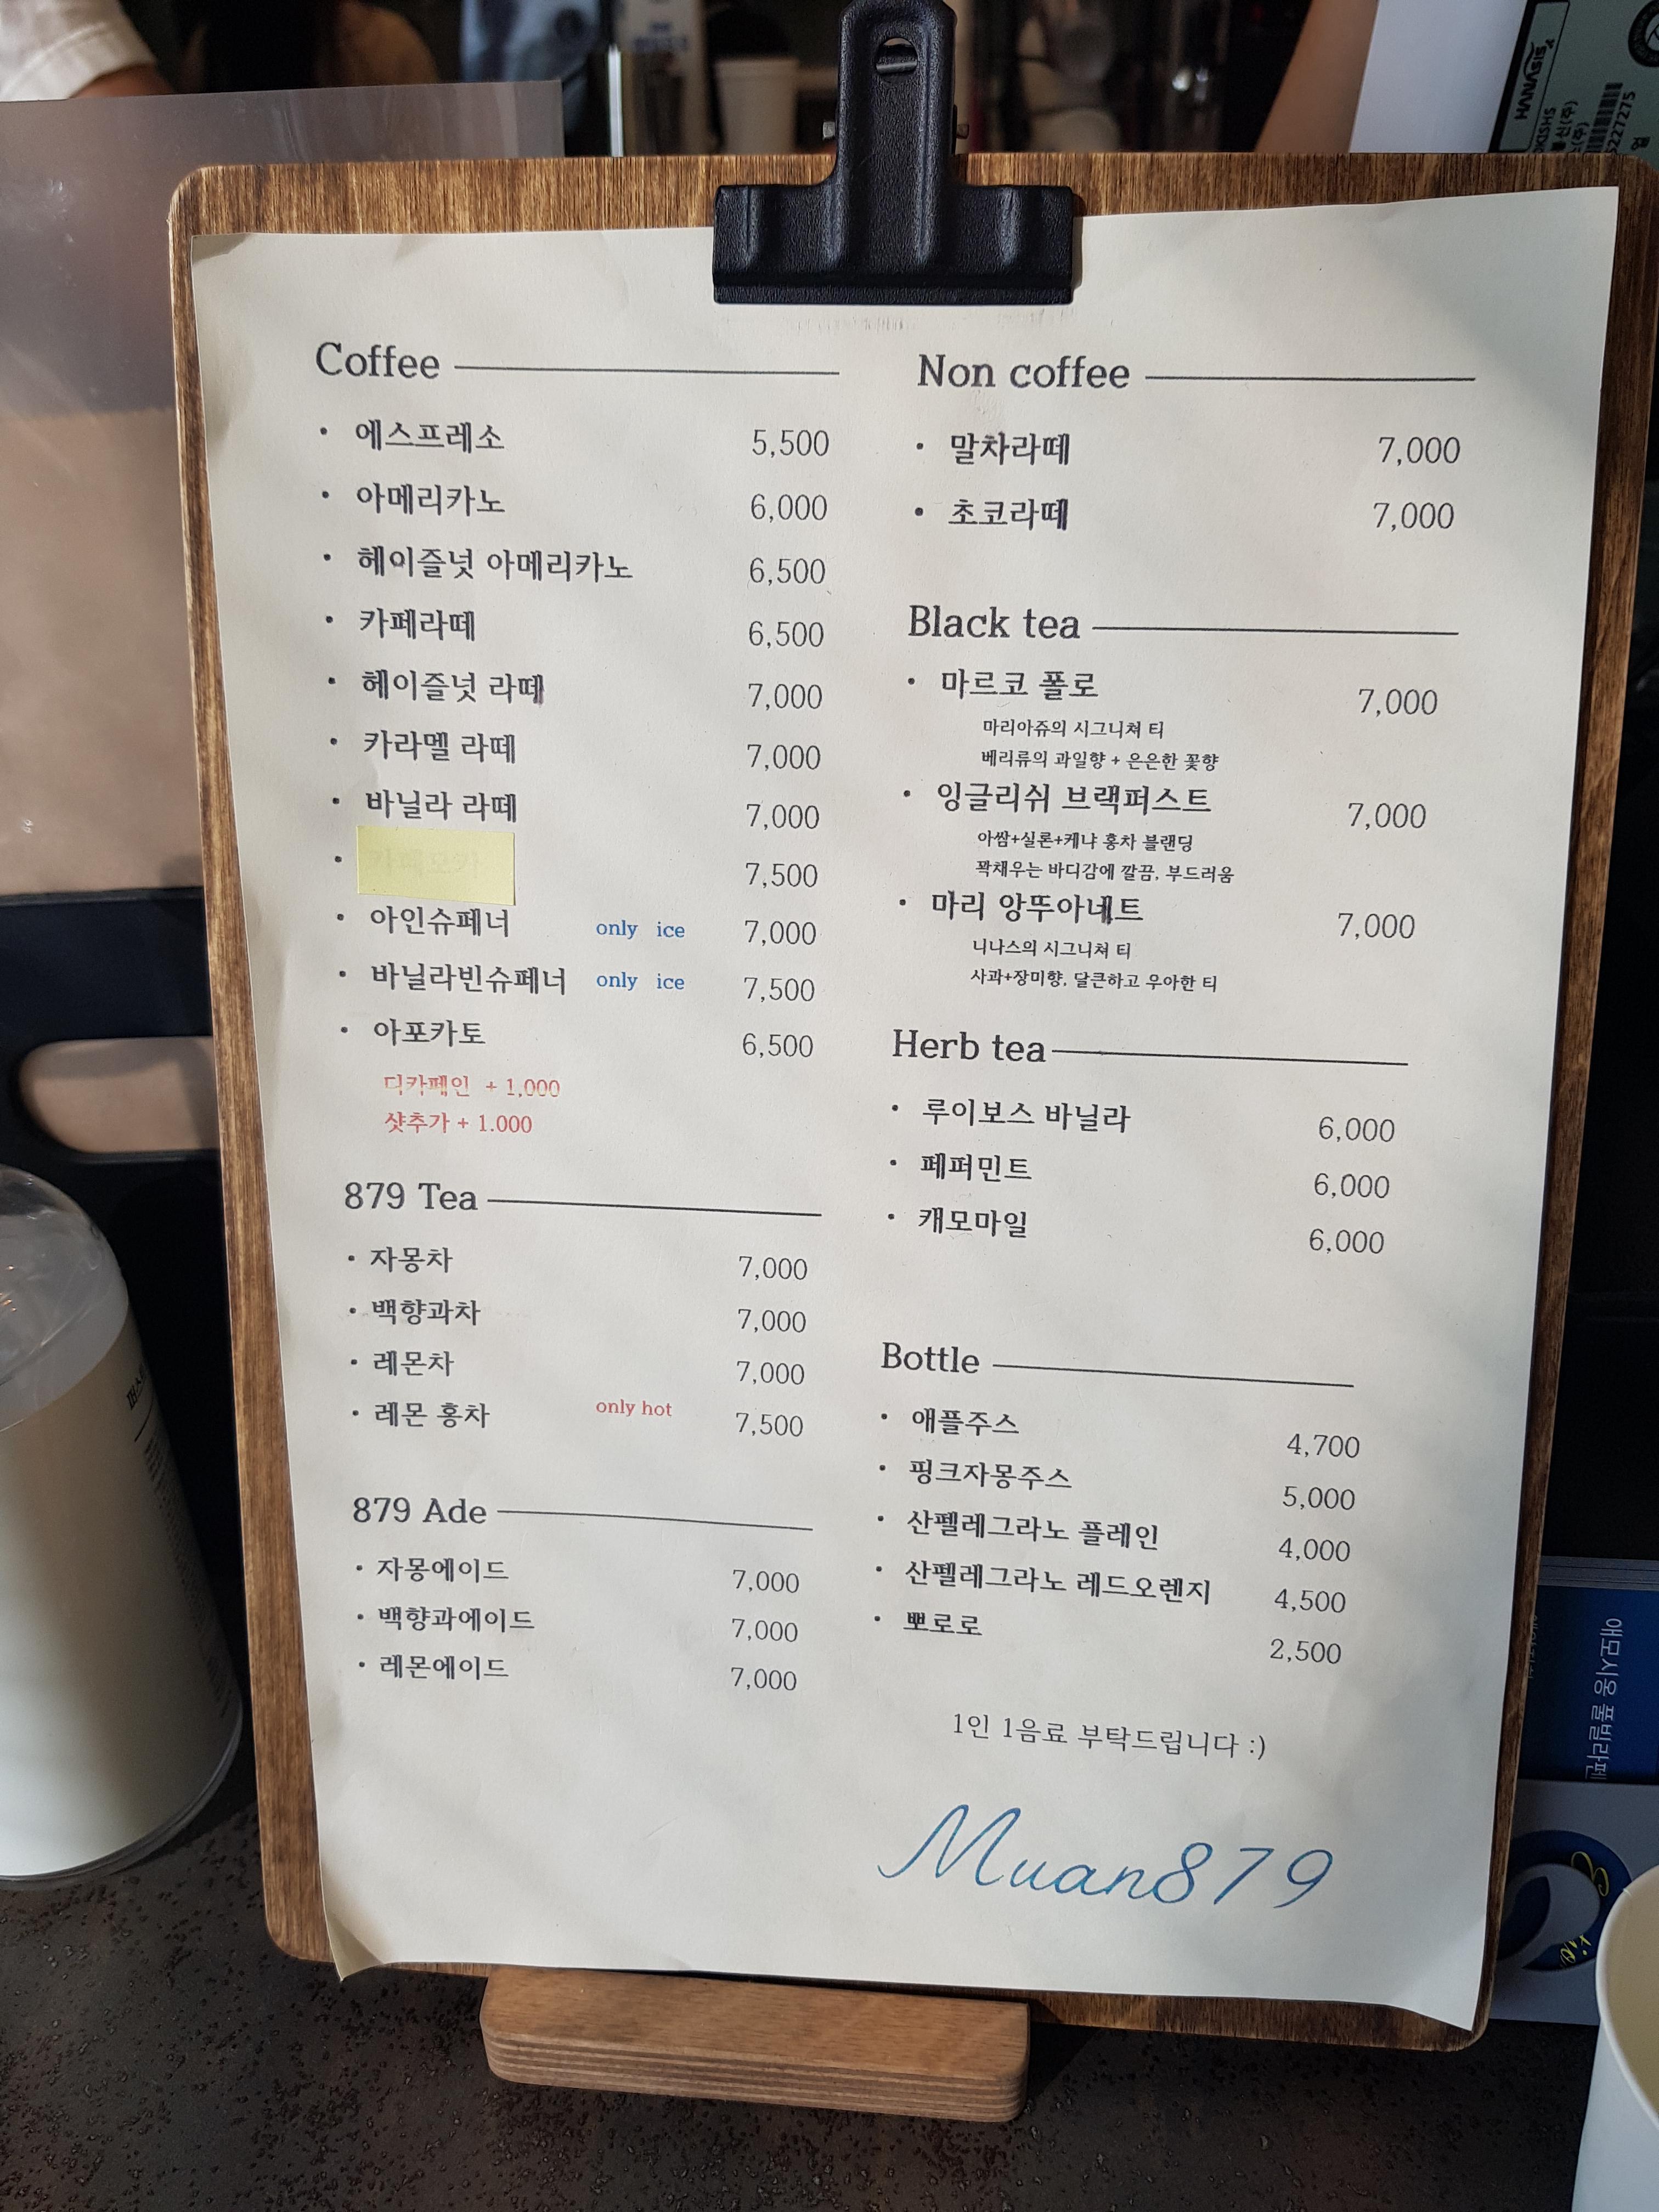 Coffee
• 에스프레소 5,500
• 아메리카노 6,000
• 헤이즐넛 아메리카노 6,500
• 카페라떼 6,500
• 헤이즐넛 라떼 7,000
• 카라멜 라떼 7,000
• 바닐라 라떼 7,000
• 7,500
• 아인슈페너 only ice 7,000
• 바닐라빈슈페너 only ice 7,500
• 아포카토 6,500
디카페인 + 1,000
샷추가 + 1.000
879 Tea
• 자몽차 7,000
• 백향과차 7,000
• 레몬차 7,000
• 레몬 홍차 only hot 7,500
879 Ade
• 자몽에이드 7,000
• 백향과에이드 7,000
• 레몬에이드 7,000
Non coffee
• 말차라떼 7,000
• 초코라떼 7,000
Black tea
• 마르코 폴로 7,000
마리아쥬의 시그니쳐 티
베리류의 과일향 + 은은한 꽃향
• 잉글리쉬 브랙퍼스트 7,000
아쌈+실론+케냐 홍차 블랜딩
꽉채우는 바디감에 깔끔, 부드러움
• 마리 앙뚜아네트 7,000
니나스의 시그니쳐 티
사과+장미향, 달큰하고 우아한 티
Herb tea
• 루이보스 바닐라 6,000
• 페퍼민트 6,000
• 캐모마일 6,000
Bottle
• 애플주스 4,700
• 핑크자몽주스 5,000
• 산펠레그라노 플레인 4,000
• 산펠레그라노 레드오렌지 4,500
• 뽀로로 2,500
1인 1음료 부탁드립니다 :)
Muan879
HANVSIS
5227275
애모시옹 풀빌라펜